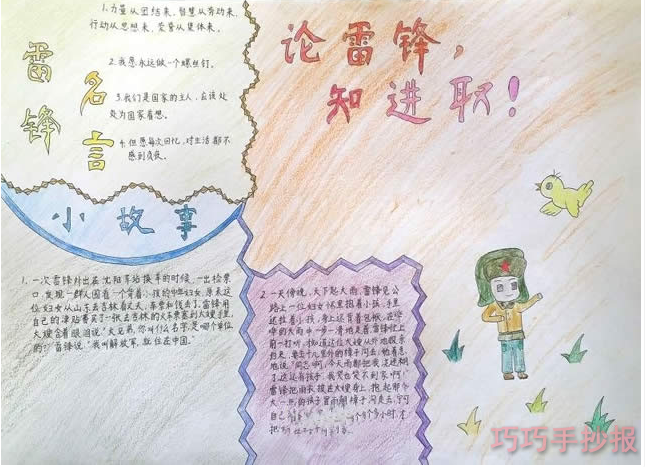 论雷锋，
知进取！
雷锋
名言
1.力量从团结来，智慧从劳动来，
行动从思想来，荣誉从集体来。
2.我愿永远做一个螺丝钉。
3.我们是国家的主人，应该处
处为国家着想。
4.但愿每次回忆，对生活都不
感到负疚。
小故事
1.一次雷锋外出在沈阳车站换车的时候，一出检票
口，发现一群人围着一个背着小孩的中年妇女，原来这
位妇女从山东去吉林看丈夫，车票和钱丢了。雷锋用
自己的津贴费买了一张去吉林的火车票塞到大嫂手里，
大嫂含着眼泪说："大兄弟，你叫什么名字，是哪个单位
的？"雷锋说："我叫解放军，就住在中国。"
2.一天傍晚，天下起大雨，雷锋见公
路上一位妇女怀里抱着小孩，手里
还拉着小孩，身上还背着包袱，在哗
哗的大雨中一步一滑地走着。雷锋忙上
前一打听，知道这位大嫂从外地探亲
归来，要去十几里外的樟子沟去，她着急
地说："同志啊，今天雨都把我浇迷糊
了，这还有孩子，我哭也哭不到家啊！"
雷锋把雨衣披在大嫂身上，抱起那个
大一点的孩子冒雨朝樟子沟走去，宁可
自己
个多小时，才
把
巧巧手抄报